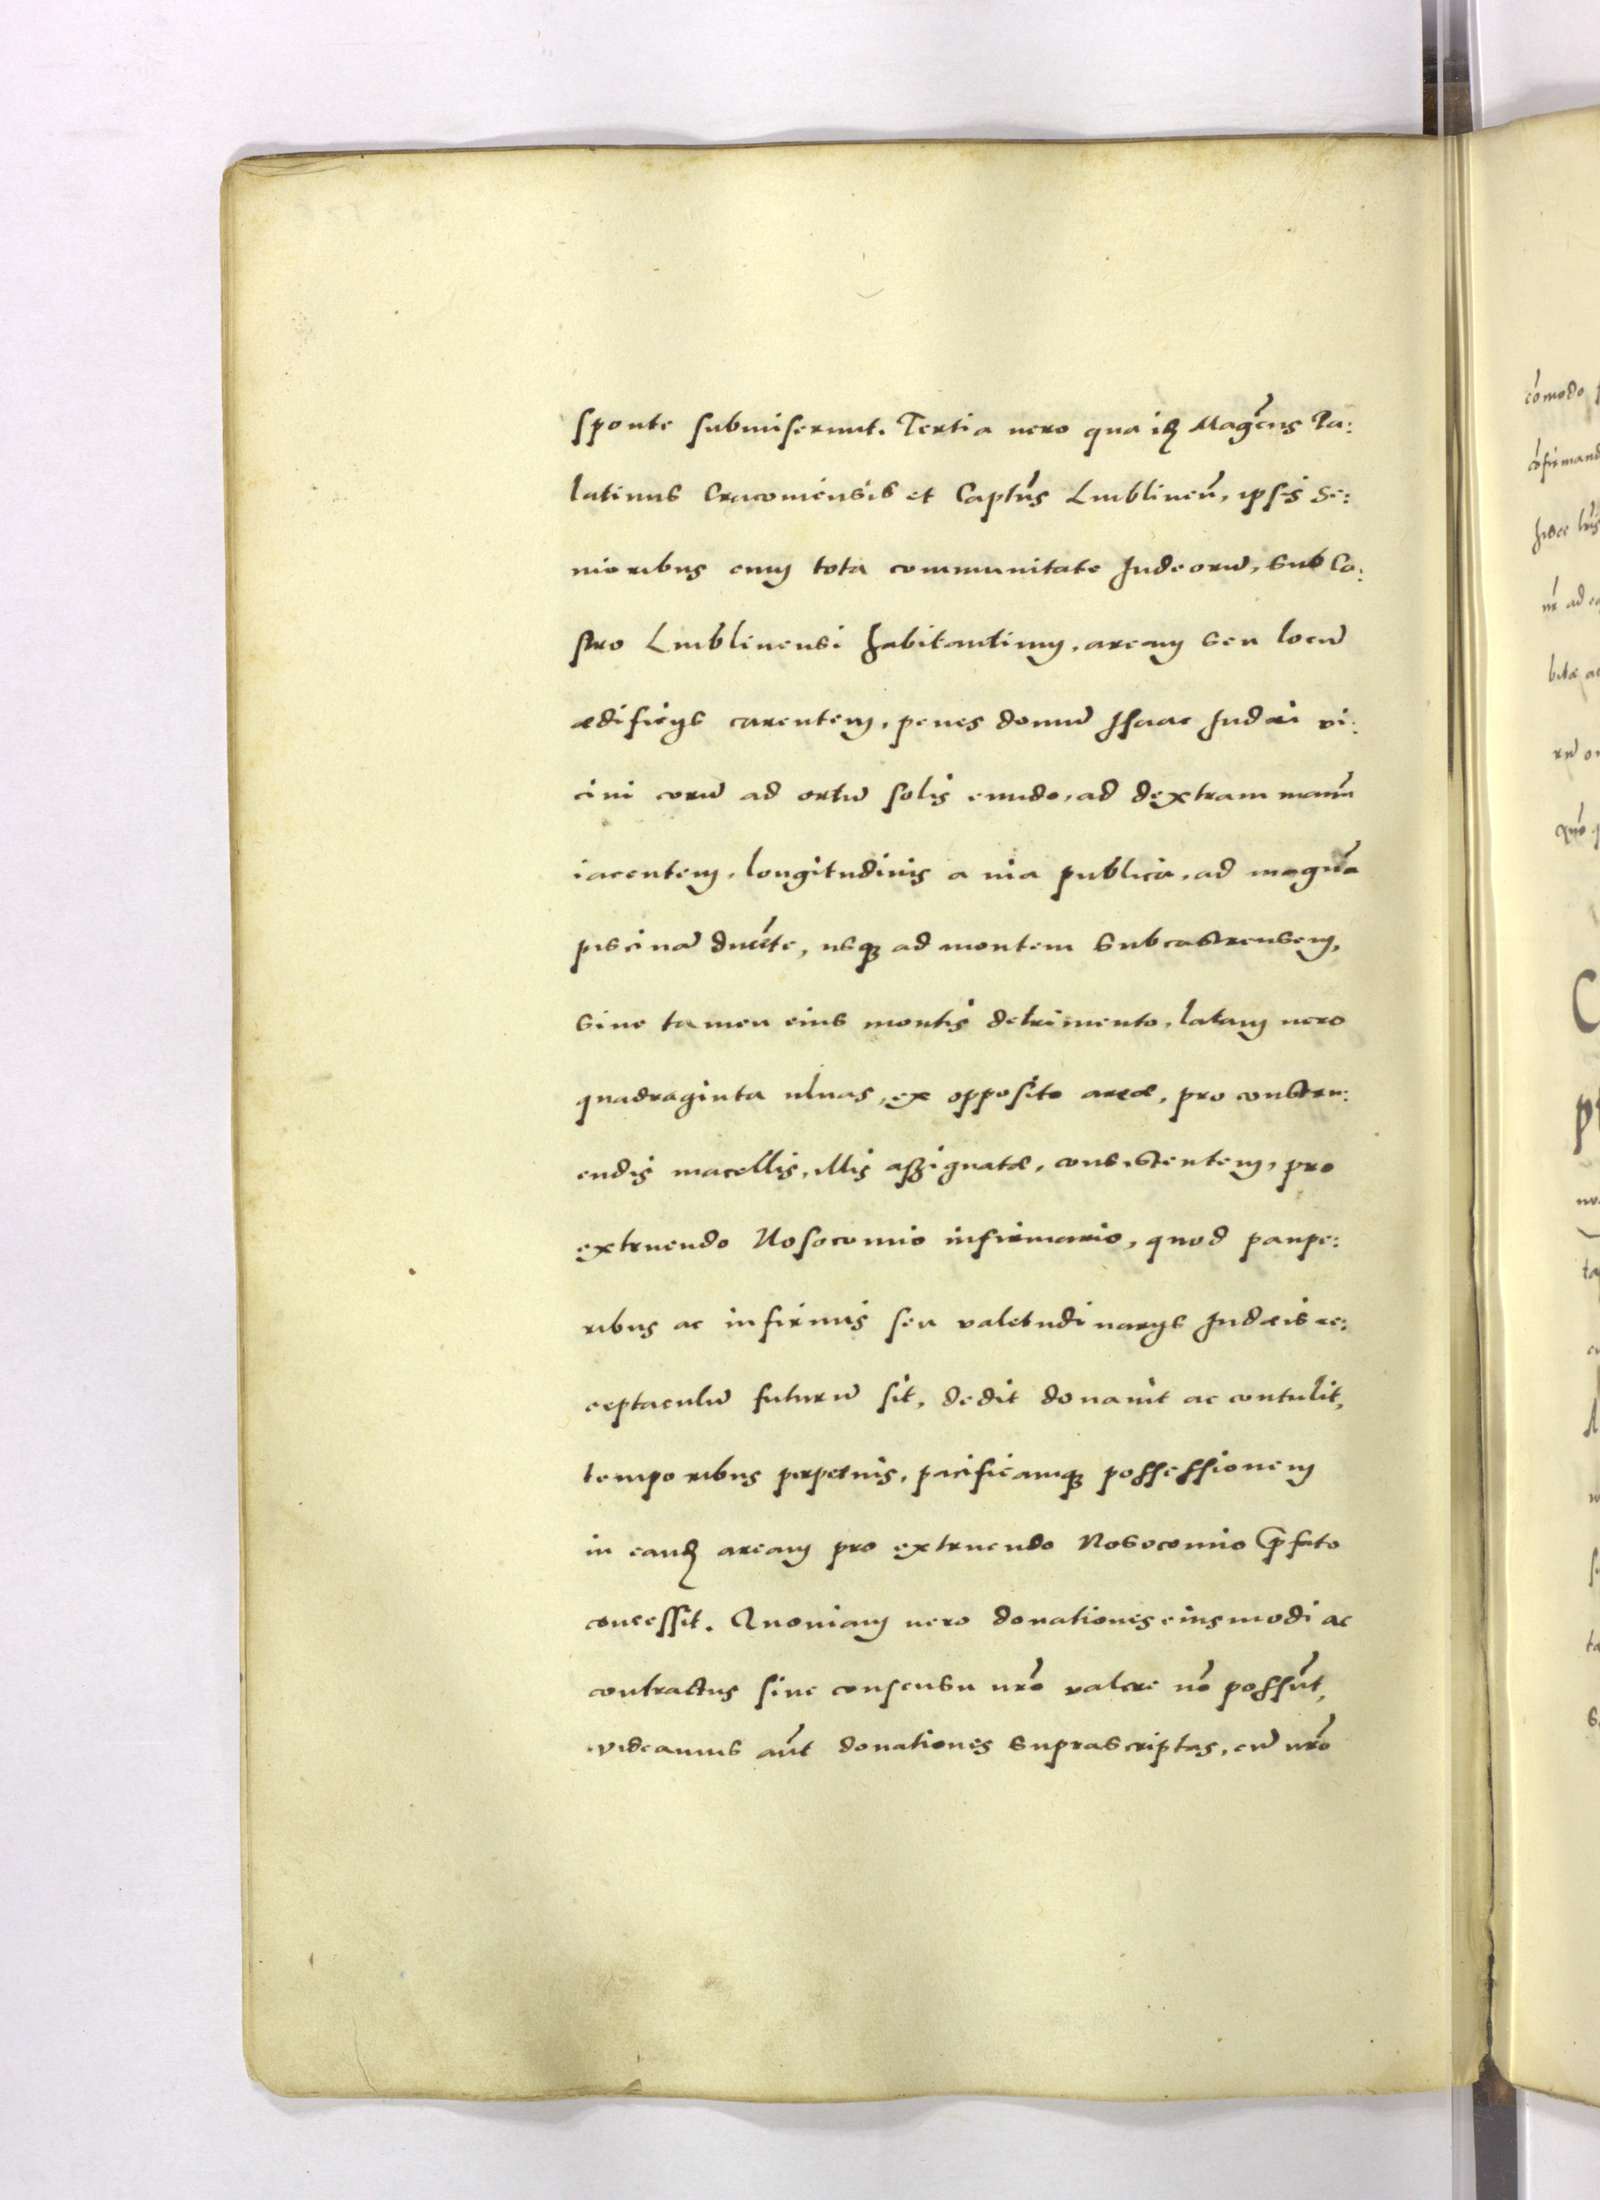 sponte submiserunt. Tertia uero qua id Mag̃cus Pa:
latinus Cracouiensis et Captũs Lublineñ, ipsis Se:
nioribus cum tota communitate Iudeorũ, sub Ca:
stro Lublinensi habitantium, aream seu locũ
ædificijs carentem, penes domũ Isaac Iudæi vi:
cini eorũ ad ortũ solis eundo, ad dextram manũ
iacentem, longitudinis a uia publica, ad magnã
piscinã ducẽte, usq̃ ad montem subcastrensem,
sine tamen eius montis detrimento, latam uero
quadraginta ulnas, ex opposito areæ, pro constru:
endis macellis, illis assignatæ, consistentem, pro
extruendo Nosocomio infirmario, quod paupe:
ribus ac infirmis seu valetudinarijs Iudæis re:
ceptaculũ futurũ sit, dedit donauit ac contulit,
temporibus perpetuis, pacificamq̃ possessionem
in eand aream pro extruendo Nosocomio p̃fato
concessit. Quoniam uero donationes eiusmodi ac
contractus sine consensu nr̃o valere nõ possũt,
videamus aũt donationes suprascriptas, cũ nr̃o
cõmodo
cõfirmand
C